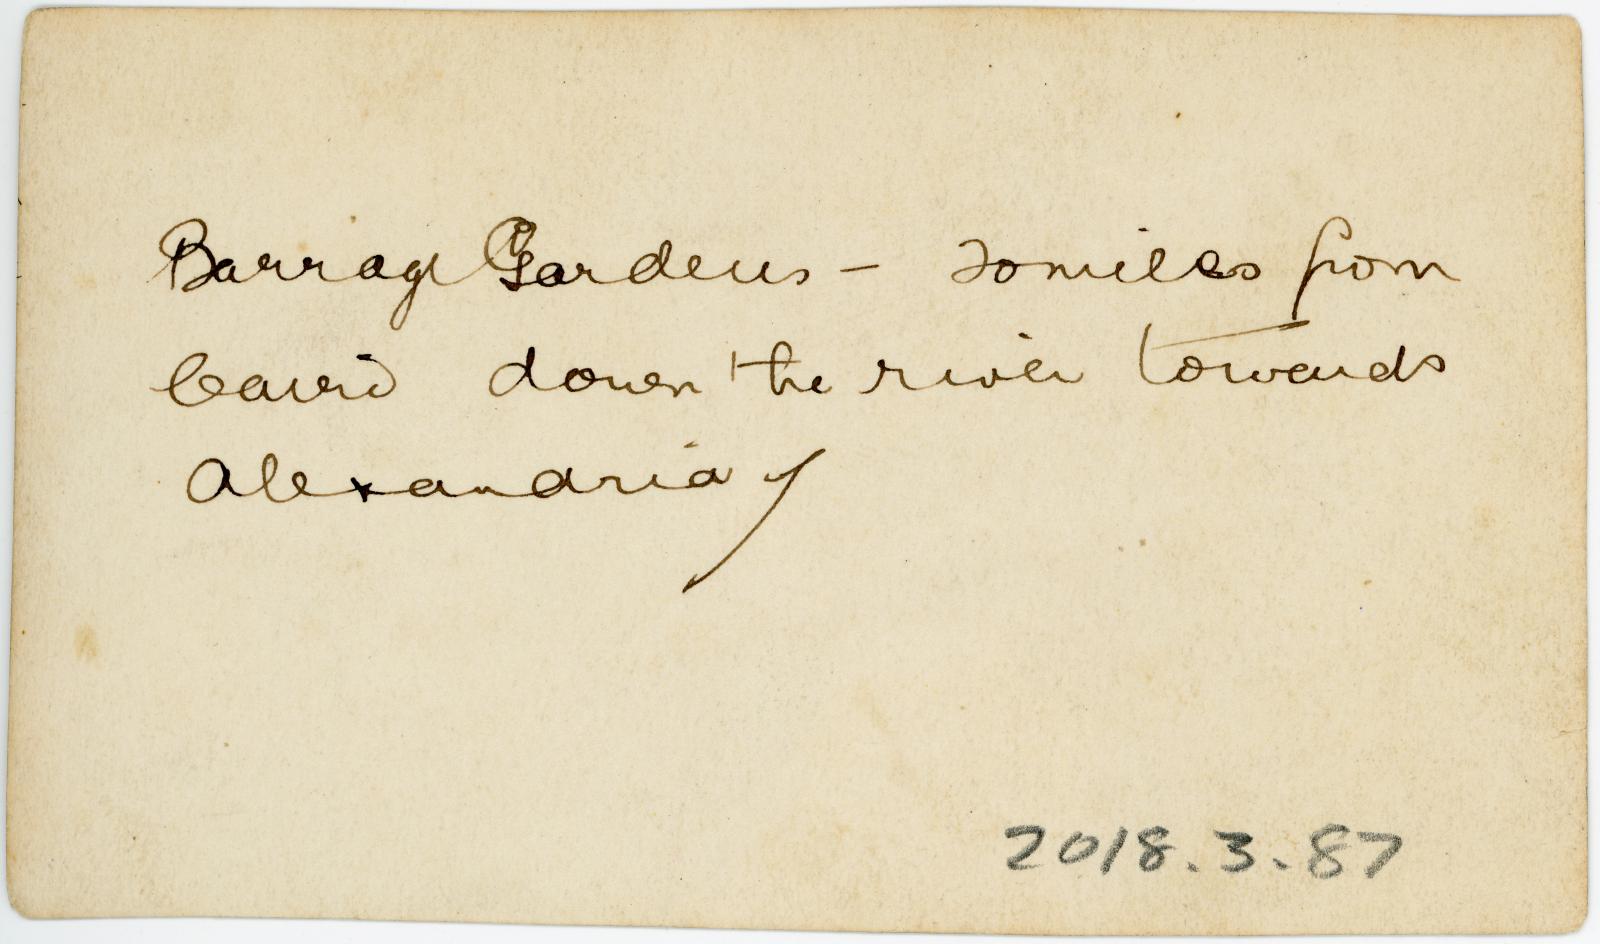 Barrage Gardens – 20 miles from
Cairo down the river towards
Alexandria
2018.3.87